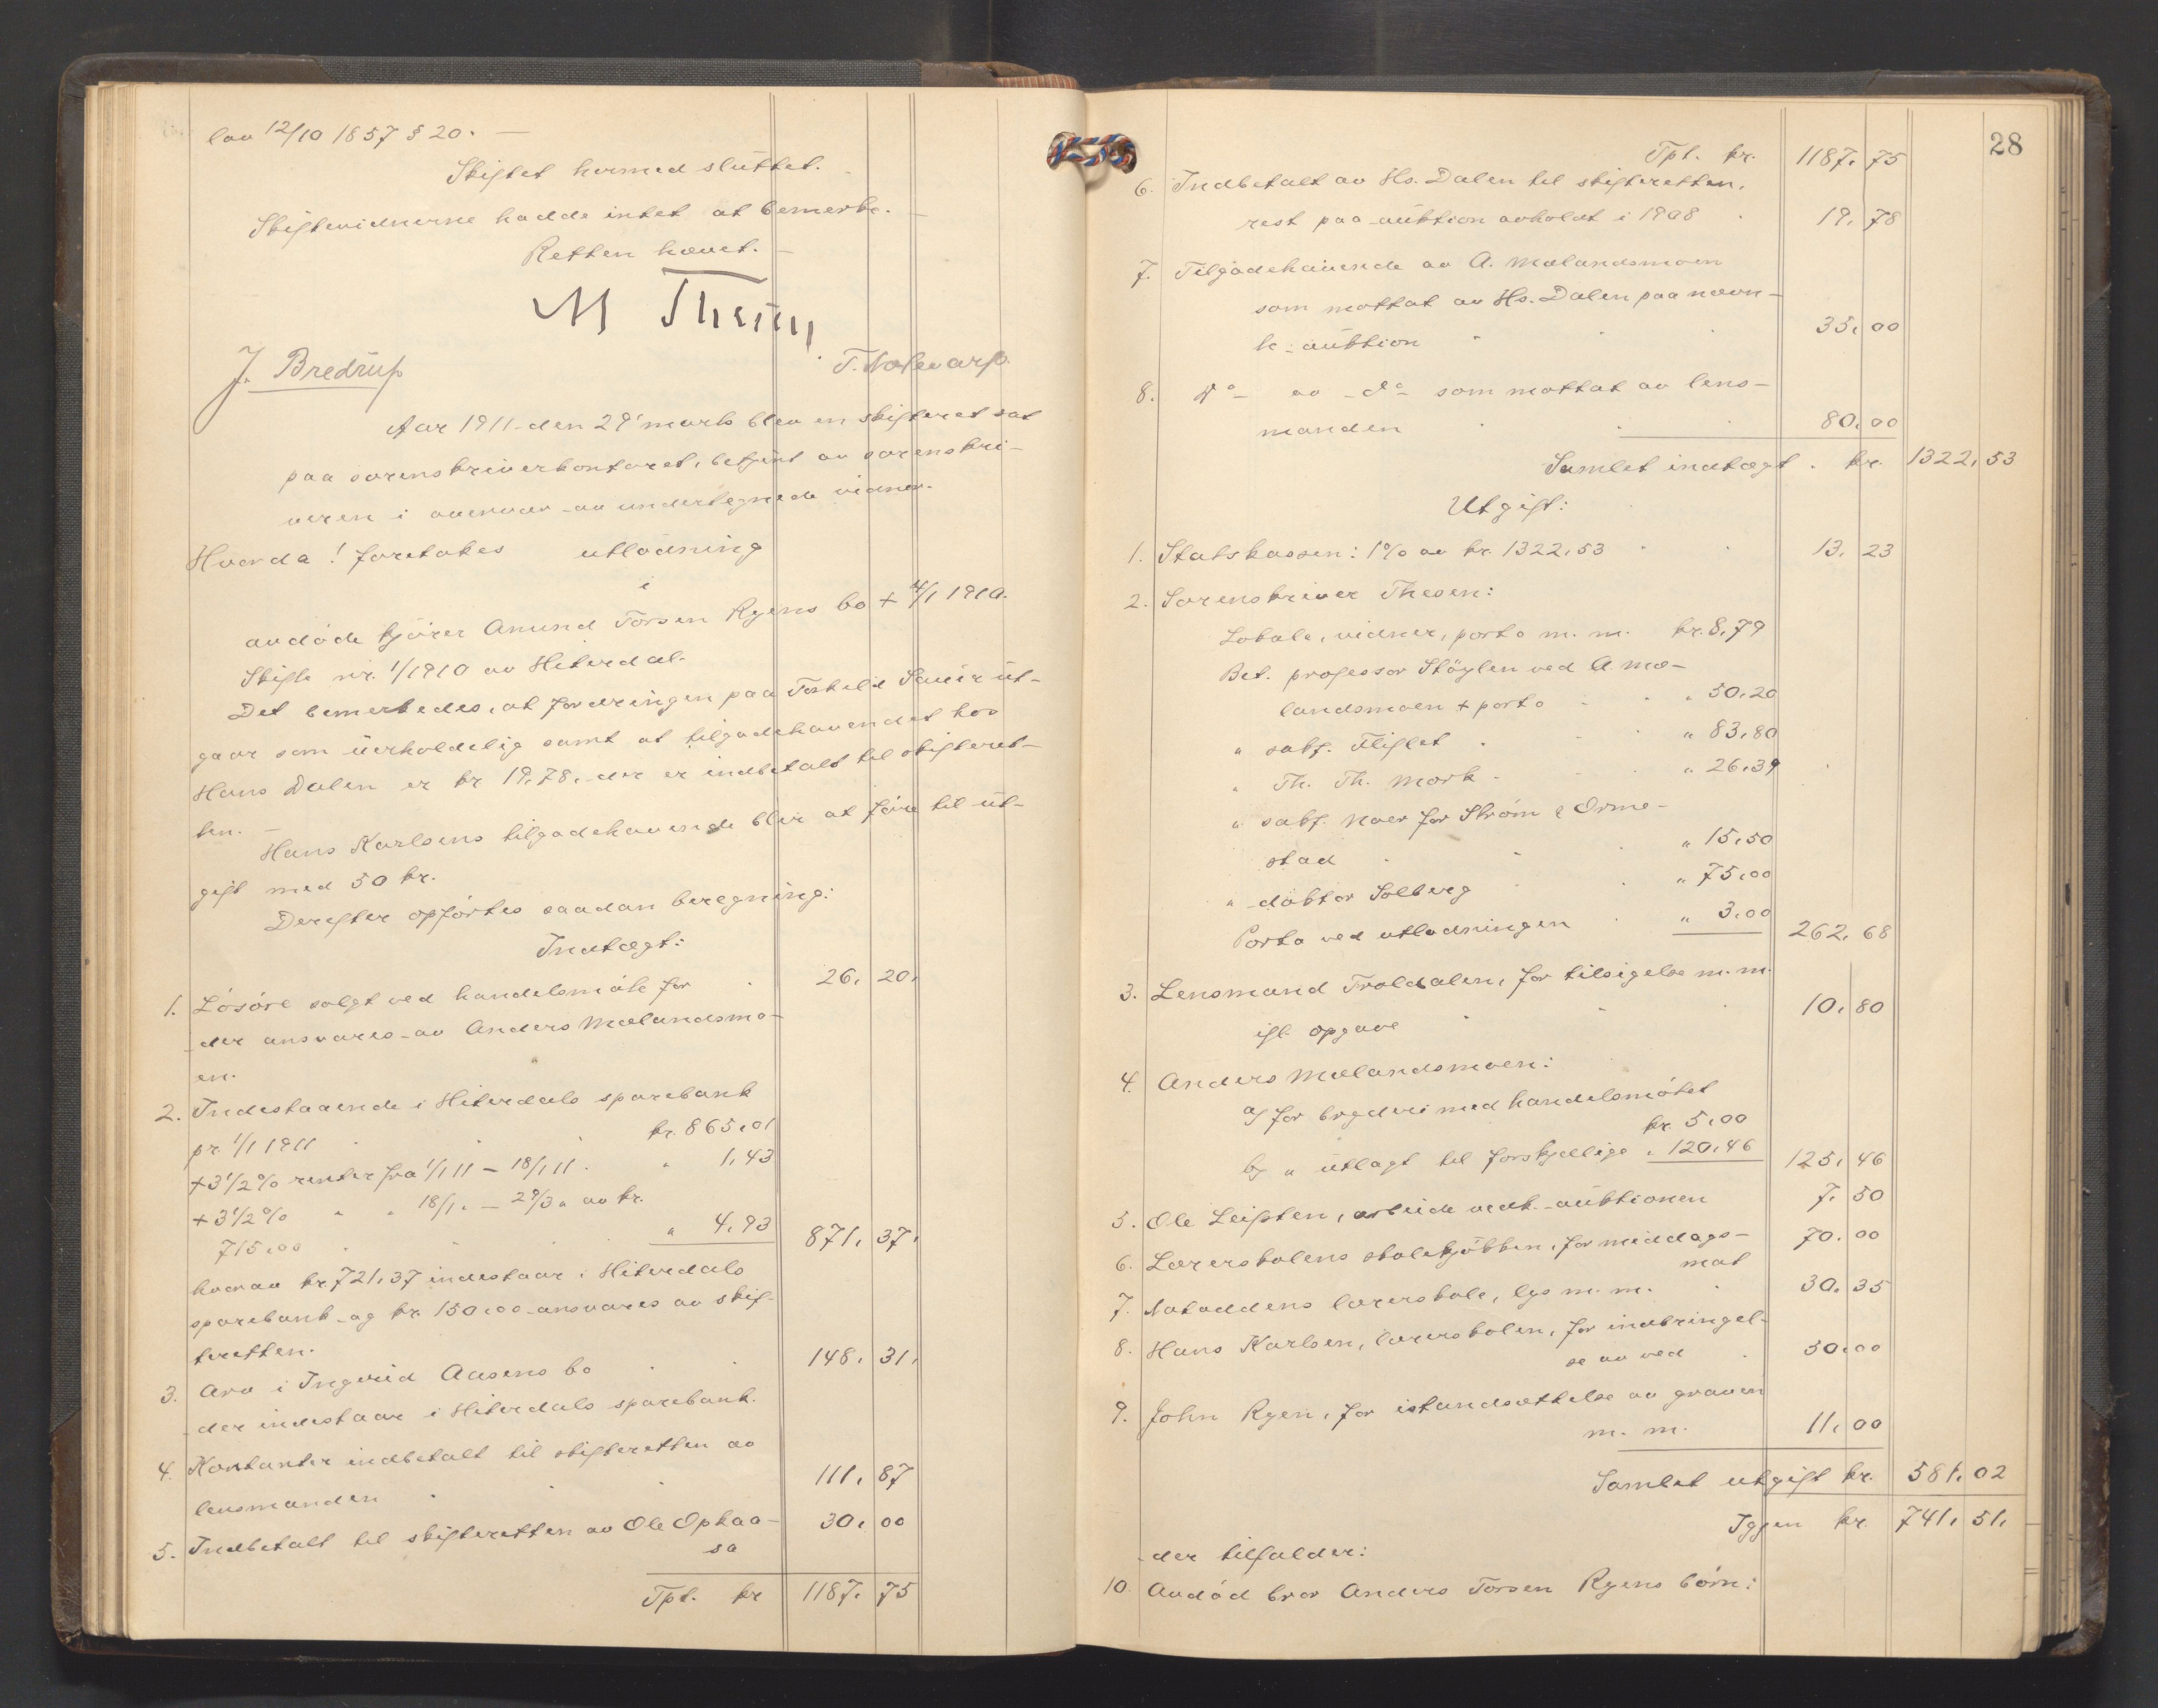 lov 12/10 1857 § 20. —
Skiftet hermed sluttet.
Skiftevidnerne hadde intet at bemerke. —
Retten hævet. —
M Thesen
J. Bredrup
T. Nolevarp.
Aar 1911 den 29' marts blev en skifteret sat
paa sorenskriverkontoret, betjent av sorenskri-
veren i overvær av undertegnede vidner.
Hvorda! foretokes utlodning
i
avdöde kjörer Anund Torsen Ryens bo + 4/1 1910.
Skifte nr. 1/1910 av Hiterdal.
Det bemerkedes, at fordringen paa Torkeld Sauer ut-
gaar som uerholdelig samt at tilgodehavendet hos
Hans Dalen er kr 19,78, der er indbetalt til skifteret-
ten. —
Hans Karlsens tilgodehavende blir at före til ut-
gift med 50 kr.
Derefter opförtes saadan beregning:
Indtægt:
1. Lösöre solgt ved handelsmöte for . 26, 20,
der ansvares av Anders Mælandsmo-
en.
2. Indestaaende i Hiterdals sparebank
pr. 1/1 1911 . . . kr. 865,01
+ 3 1/2 % renter fra 1/1 11 — 18/1 11 . " 1,43
+ 3 1/2 % " " 18/1 " — 29/3 " av kr.
715,00 . . . " 4,93 871, 37,
hvorav kr 721,37 indestaar i Hiterdals
sparebank og kr. 150,00 ansvares av skif-
teretten.
3. Arv i Ingerid Aasens bo . . 148, 31,
der indestaar i Hiterdals sparebank.
4. Kontanter indbetalt til skifteretten av
lensmanden . . . 111, 87
5. Indbetalt til skifteretten av Ole Opkaa- 30, 00
sa
Tpt. kr 1187, 75
28
Tpt. kr. 1187, 75
6. Indbetalt av Hs. Dalen til skifteretten,
rest paa auktion avholdt i 1908 . 19, 78
7. Tilgodehavende av A. Mælandsmoen
som mottat av Hs. Dalen paa nævn-
te auktion . . . 35, 00
8. do av do som mottat av lens-
manden . . . 80, 00
Samlet indtægt . kr. 1322, 53
Utgift:
1. Statskassen: 1% av kr. 1322,53 . . 13, 23
2. Sorenskriver Thesen:
Lokale, vidner, porto m. m. kr. 8,79
Bet. professor Stöylen ved A Mæ-
landsmoen + porto . . " 50,20
" sakf. Fliflet . . . " 83,80
" Th. Th. Mork . . . " 26,39
" sakf. Moer for Ström & Orme-
stad . . . " 15,50
" doktor Solberg . . " 75,00
Porto ved utlodningen . " 3,00 262, 68
3. Lensmand Troldalen, for tilsigelse m. m.
ifl. opgave . . . 10, 80
4. Anders Mælandsmoen:
a) for bryderi med handelsmötet
kr. 5,00
b) " utlagt til forskjellige " 120,46 125, 46
5. Ole Leiften, arbeide vedk. auktionen 7, 50
6. Lærerskolens skolekjökken, for middags- 70, 00
mat
7. Notoddens lærerskole, lys m. m. . 30, 35
8. Hans Karlsen, lærerskolen, for indbringel-
se av ved . 50,00
9. John Ryen, for istandsættelse av graven
m. m. 11,00
Samlet utgift kr. 581, 02
Igjen kr. 741, 51,
der tilfalder:
10. Avdöd bror Anders Torsen Ryens börn: